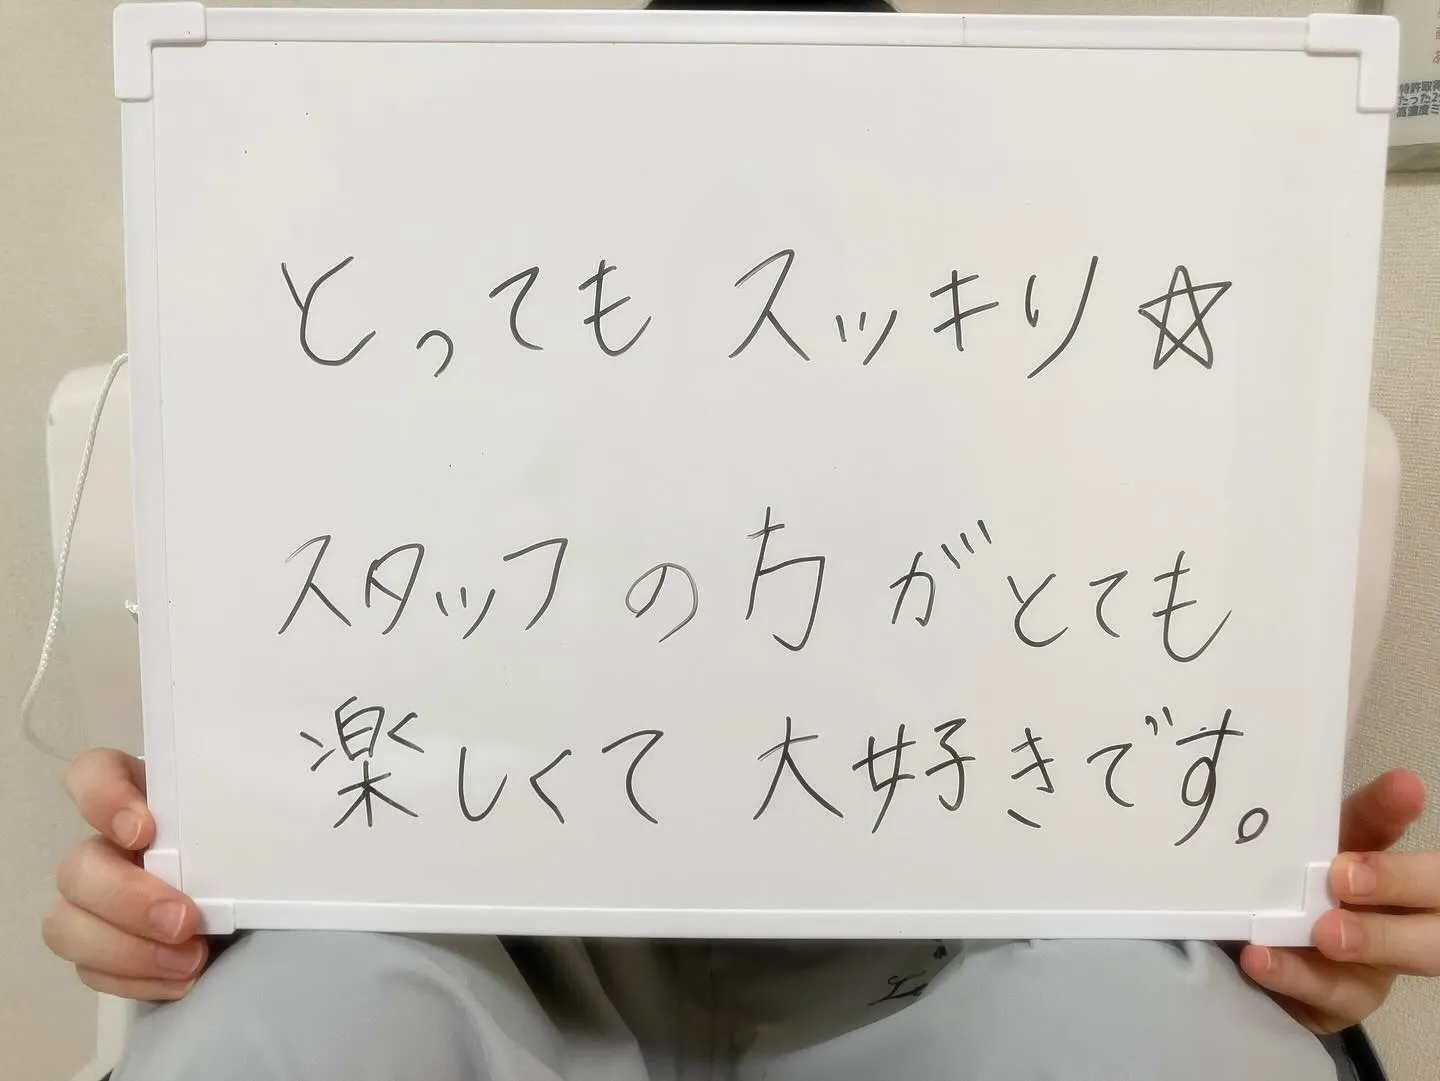 とっても スッキリ☆
スタッフの方がとても
楽しくて 大好きです。
特許取得
たった2
高濃度ミ